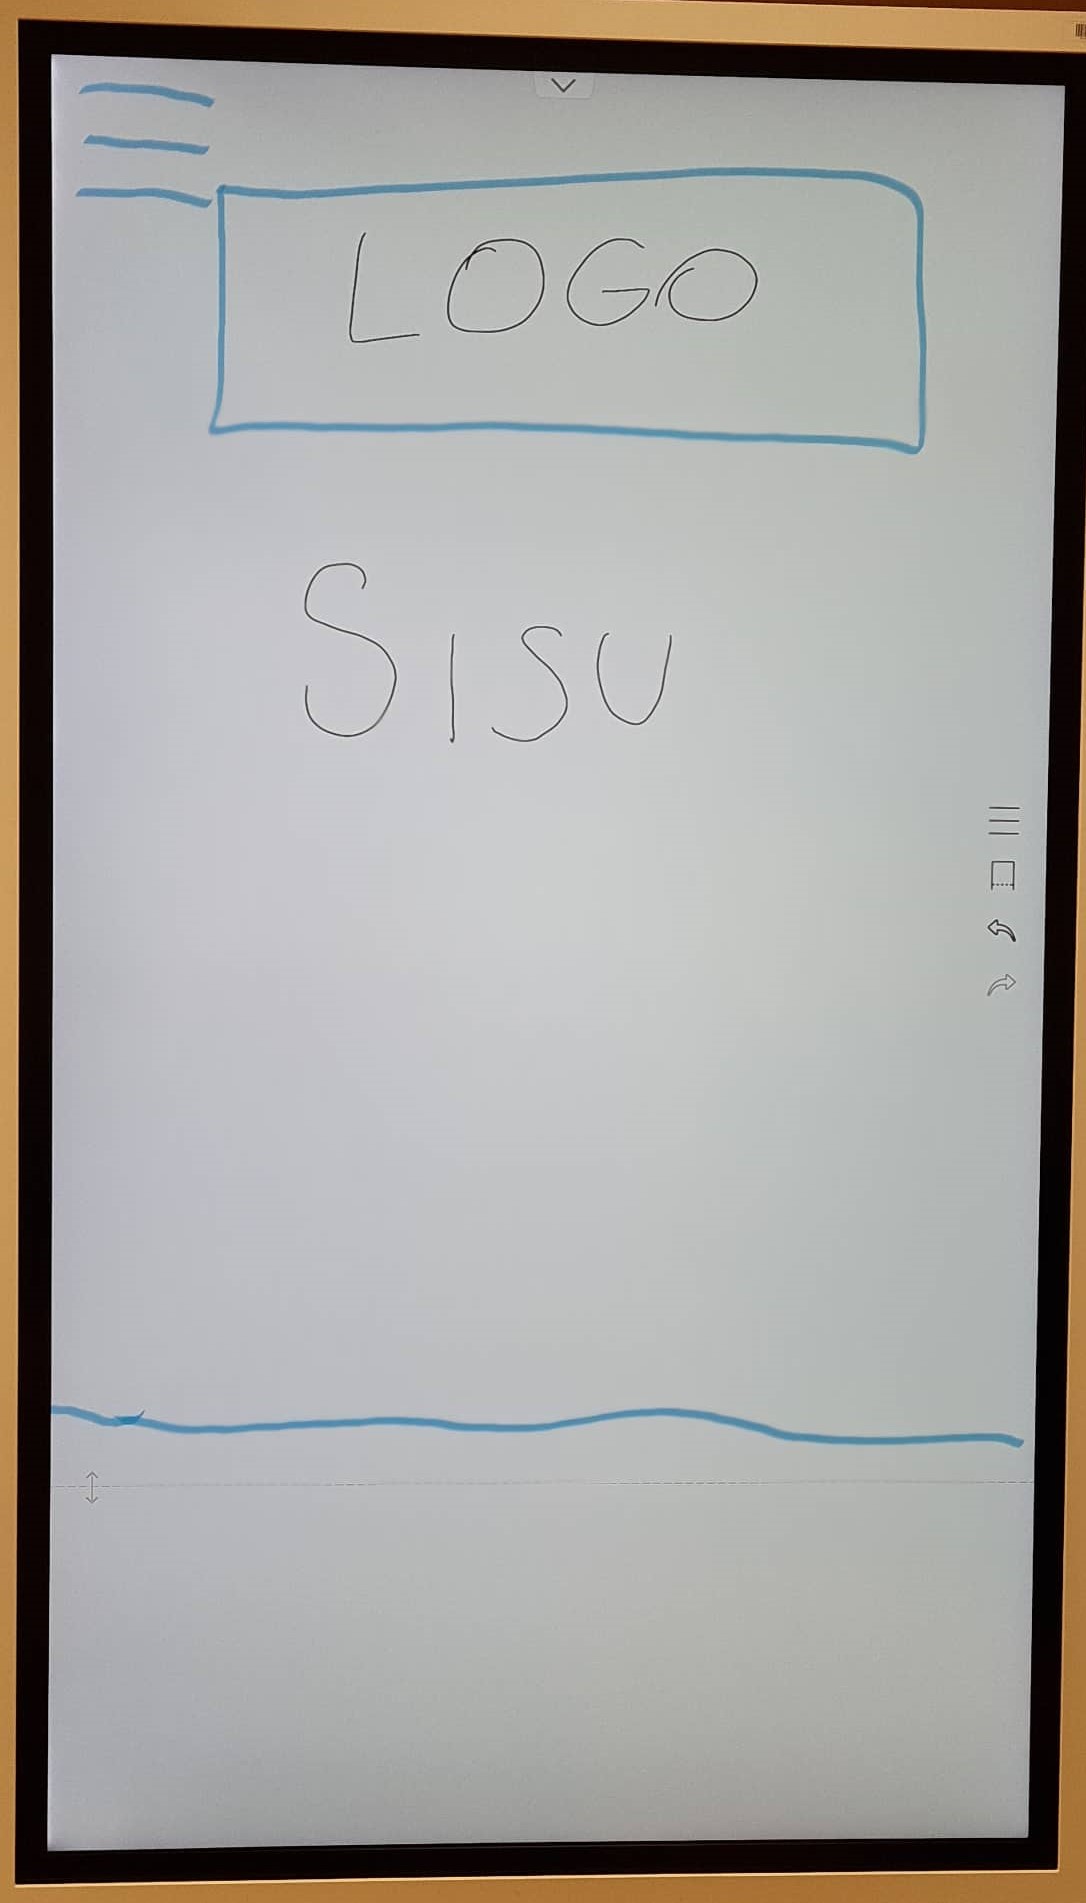 LOGO
SISU